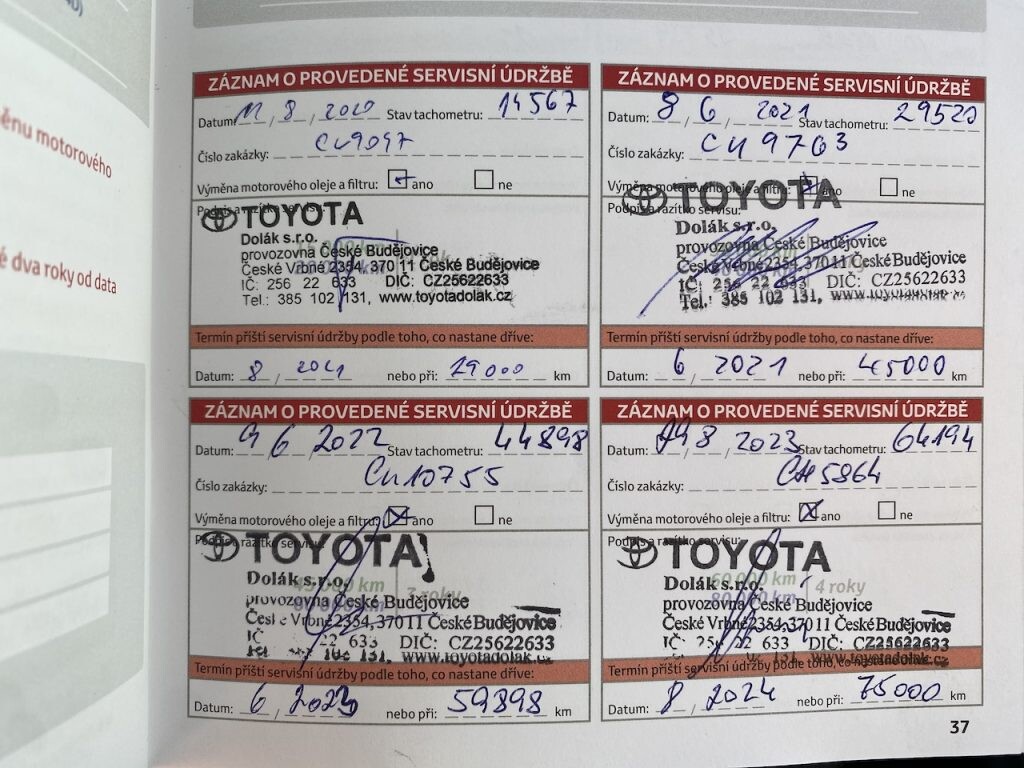 ěnu motorového
é dva roky od data
ZÁZNAM O PROVEDENÉ SERVISNÍ ÚDRŽBĚ
Datum: 11 / 8 / 2020 Stav tachometru: 14567
Číslo zakázky:
Výměna motorového oleje a filtru: ano ne
Podpis a razítko servisu:
TOYOTA
Dolák s.r.o.
provozovna České Budějovice
České Vrbné 2354, 370 11 České Budějovice
IČ: 256 22 633 DIČ: CZ25622633
Tel.: 385 102 131, www.toyotadolák.cz
Termín příští servisní údržby podle toho, co nastane dříve:
Datum: 8 / 2021 nebo při: 29000 km
ZÁZNAM O PROVEDENÉ SERVISNÍ ÚDRŽBĚ
Datum: 8 / 6 / 2021 Stav tachometru: 29520
Číslo zakázky: CU 9763
Výměna motorového oleje a filtru: ano ne
Podpis a razítko servisu:
TOYOTA
Dolák s.r.o.
provozovna České Budějovice
České Vrbné 2354, 370 11 České Budějovice
IČ: 256 22 633 DIČ: CZ25622633
Tel.: 385 102 131, www.toyotadolák.cz
Termín příští servisní údržby podle toho, co nastane dříve:
Datum: 6 / 2021 nebo při: 45000 km
ZÁZNAM O PROVEDENÉ SERVISNÍ ÚDRŽBĚ
Datum: 9 / 6 / 2022 Stav tachometru: 44898
Číslo zakázky: CU10755
Výměna motorového oleje a filtru: ano ne
Podpis a razítko servisu:
TOYOTA
Dolák s.r.o.
45 000 km
provozovna České Budějovice
České Vrbné 2354, 370 11 České Budějovice
IČ 22 633 DIČ: CZ25622633
131, www.toyotadolak.cz
Termín příští servisní údržby podle toho, co nastane dříve:
Datum: 6 / 2023 nebo při: 59898 km
ZÁZNAM O PROVEDENÉ SERVISNÍ ÚDRŽBĚ
Datum: 8 / 2023 Stav tachometru: 64194
Číslo zakázky: 5864
Výměna motorového oleje a filtru: ano ne
Podpis a razítko servisu:
TOYOTA
60 000 km
Dolák s.r.o. 4 roky
80 000 km
provozovna České Budějovice
České Vrbné 2354, 370 11 České Budějovice
IČ: 256 22 633 DIČ: CZ25622633
131, www.toyotadolak.cz
Termín příští servisní údržby podle toho, co nastane dříve:
Datum: 8 / 2024 nebo při: 75000 km
37